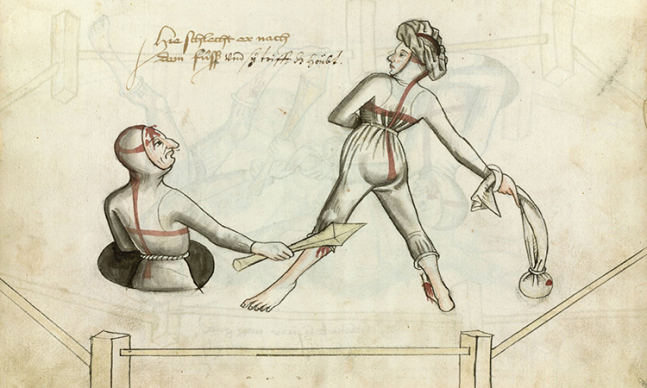 Hie schlecht er nach
dem fuſſ und ſy trifft dz houbt.